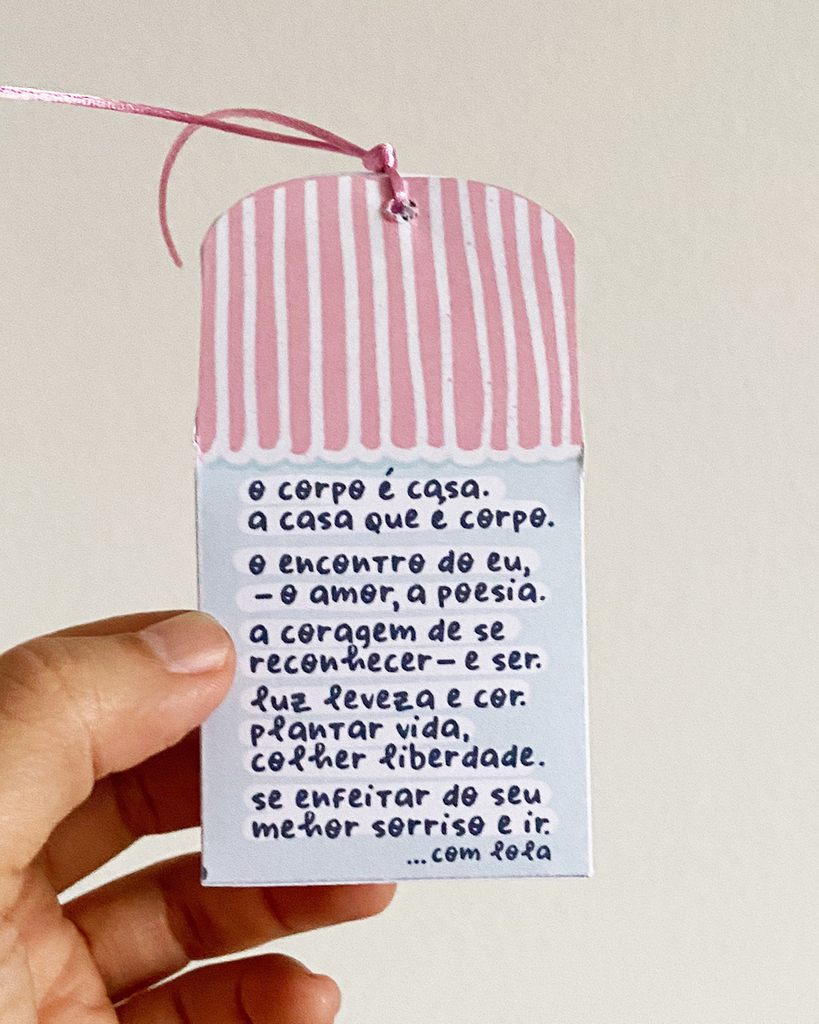 o corpo é casa.
a casa que é corpo.
o encontro do eu,
– o amor, a poesia.
a coragem de se
reconhecer – e ser.
luz leveza e cor.
plantar vida,
colher liberdade.
se enfeitar do seu
mehor sorriso e ir.
...com lola